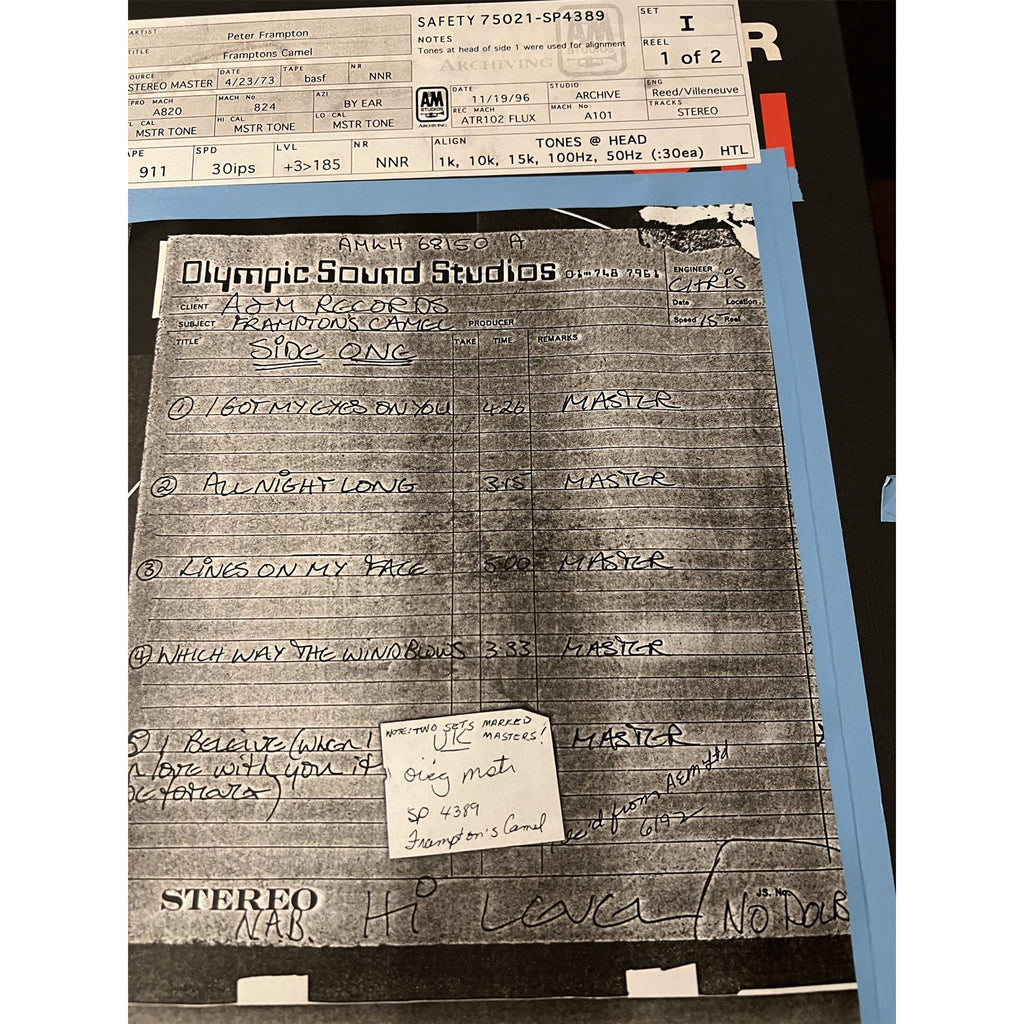 ARTIST Peter Frampton
TITLE Framptons Camel
SOURCE STEREO MASTER DATE 4/23/73 TAPE basf NR NNR
REPRO MACH A820 MACH No 824 AZI BY EAR
CAL MSTR TONE HI CAL MSTR TONE LO CAL MSTR TONE
SAFETY 75021-SP4389
NOTES
Tones at head of side 1 were used for alignment
ARCHIVING
SET I
REEL 1 of 2
A&M STUDIOS ARCHIVING
DATE 11/19/96 STUDIO ARCHIVE ENG Reed/Villeneuve
REC MACH ATR102 FLUX MACH No A101 TRACKS STEREO
TAPE 911 SPD 30ips LVL +3>185 NR NNR ALIGN TONES @ HEAD
1k, 10k, 15k, 100Hz, 50Hz (:30ea) HTL
R
AMLH 68150 A
Olympic Sound Studios 01-748 7961 ENGINEER CHRIS
CLIENT A&M RECORDS Date Location
SUBJECT FRAMPTON'S CAMEL PRODUCER Speed 15 Reel
TITLE SIDE ONE TAKE TIME REMARKS
① I GOT MY EYES ON YOU 4.26 MASTER
② ALL NIGHT LONG 3.15 MASTER
③ LINES ON MY FACE 5.00 MASTER
④ WHICH WAY THE WIND BLOWS 3.33 MASTER
5 I BELEIVE (WHEN I MASTER
LOVE WITH YOU IT
NOTE: TWO SETS MARKED
UK MASTERS!
orig mstr
SP 4389
Frampton's Camel
Rec'd from A&M Ltd
6/92
STEREO
NAB. Hi LEVEL JS. No.
NO DOLB